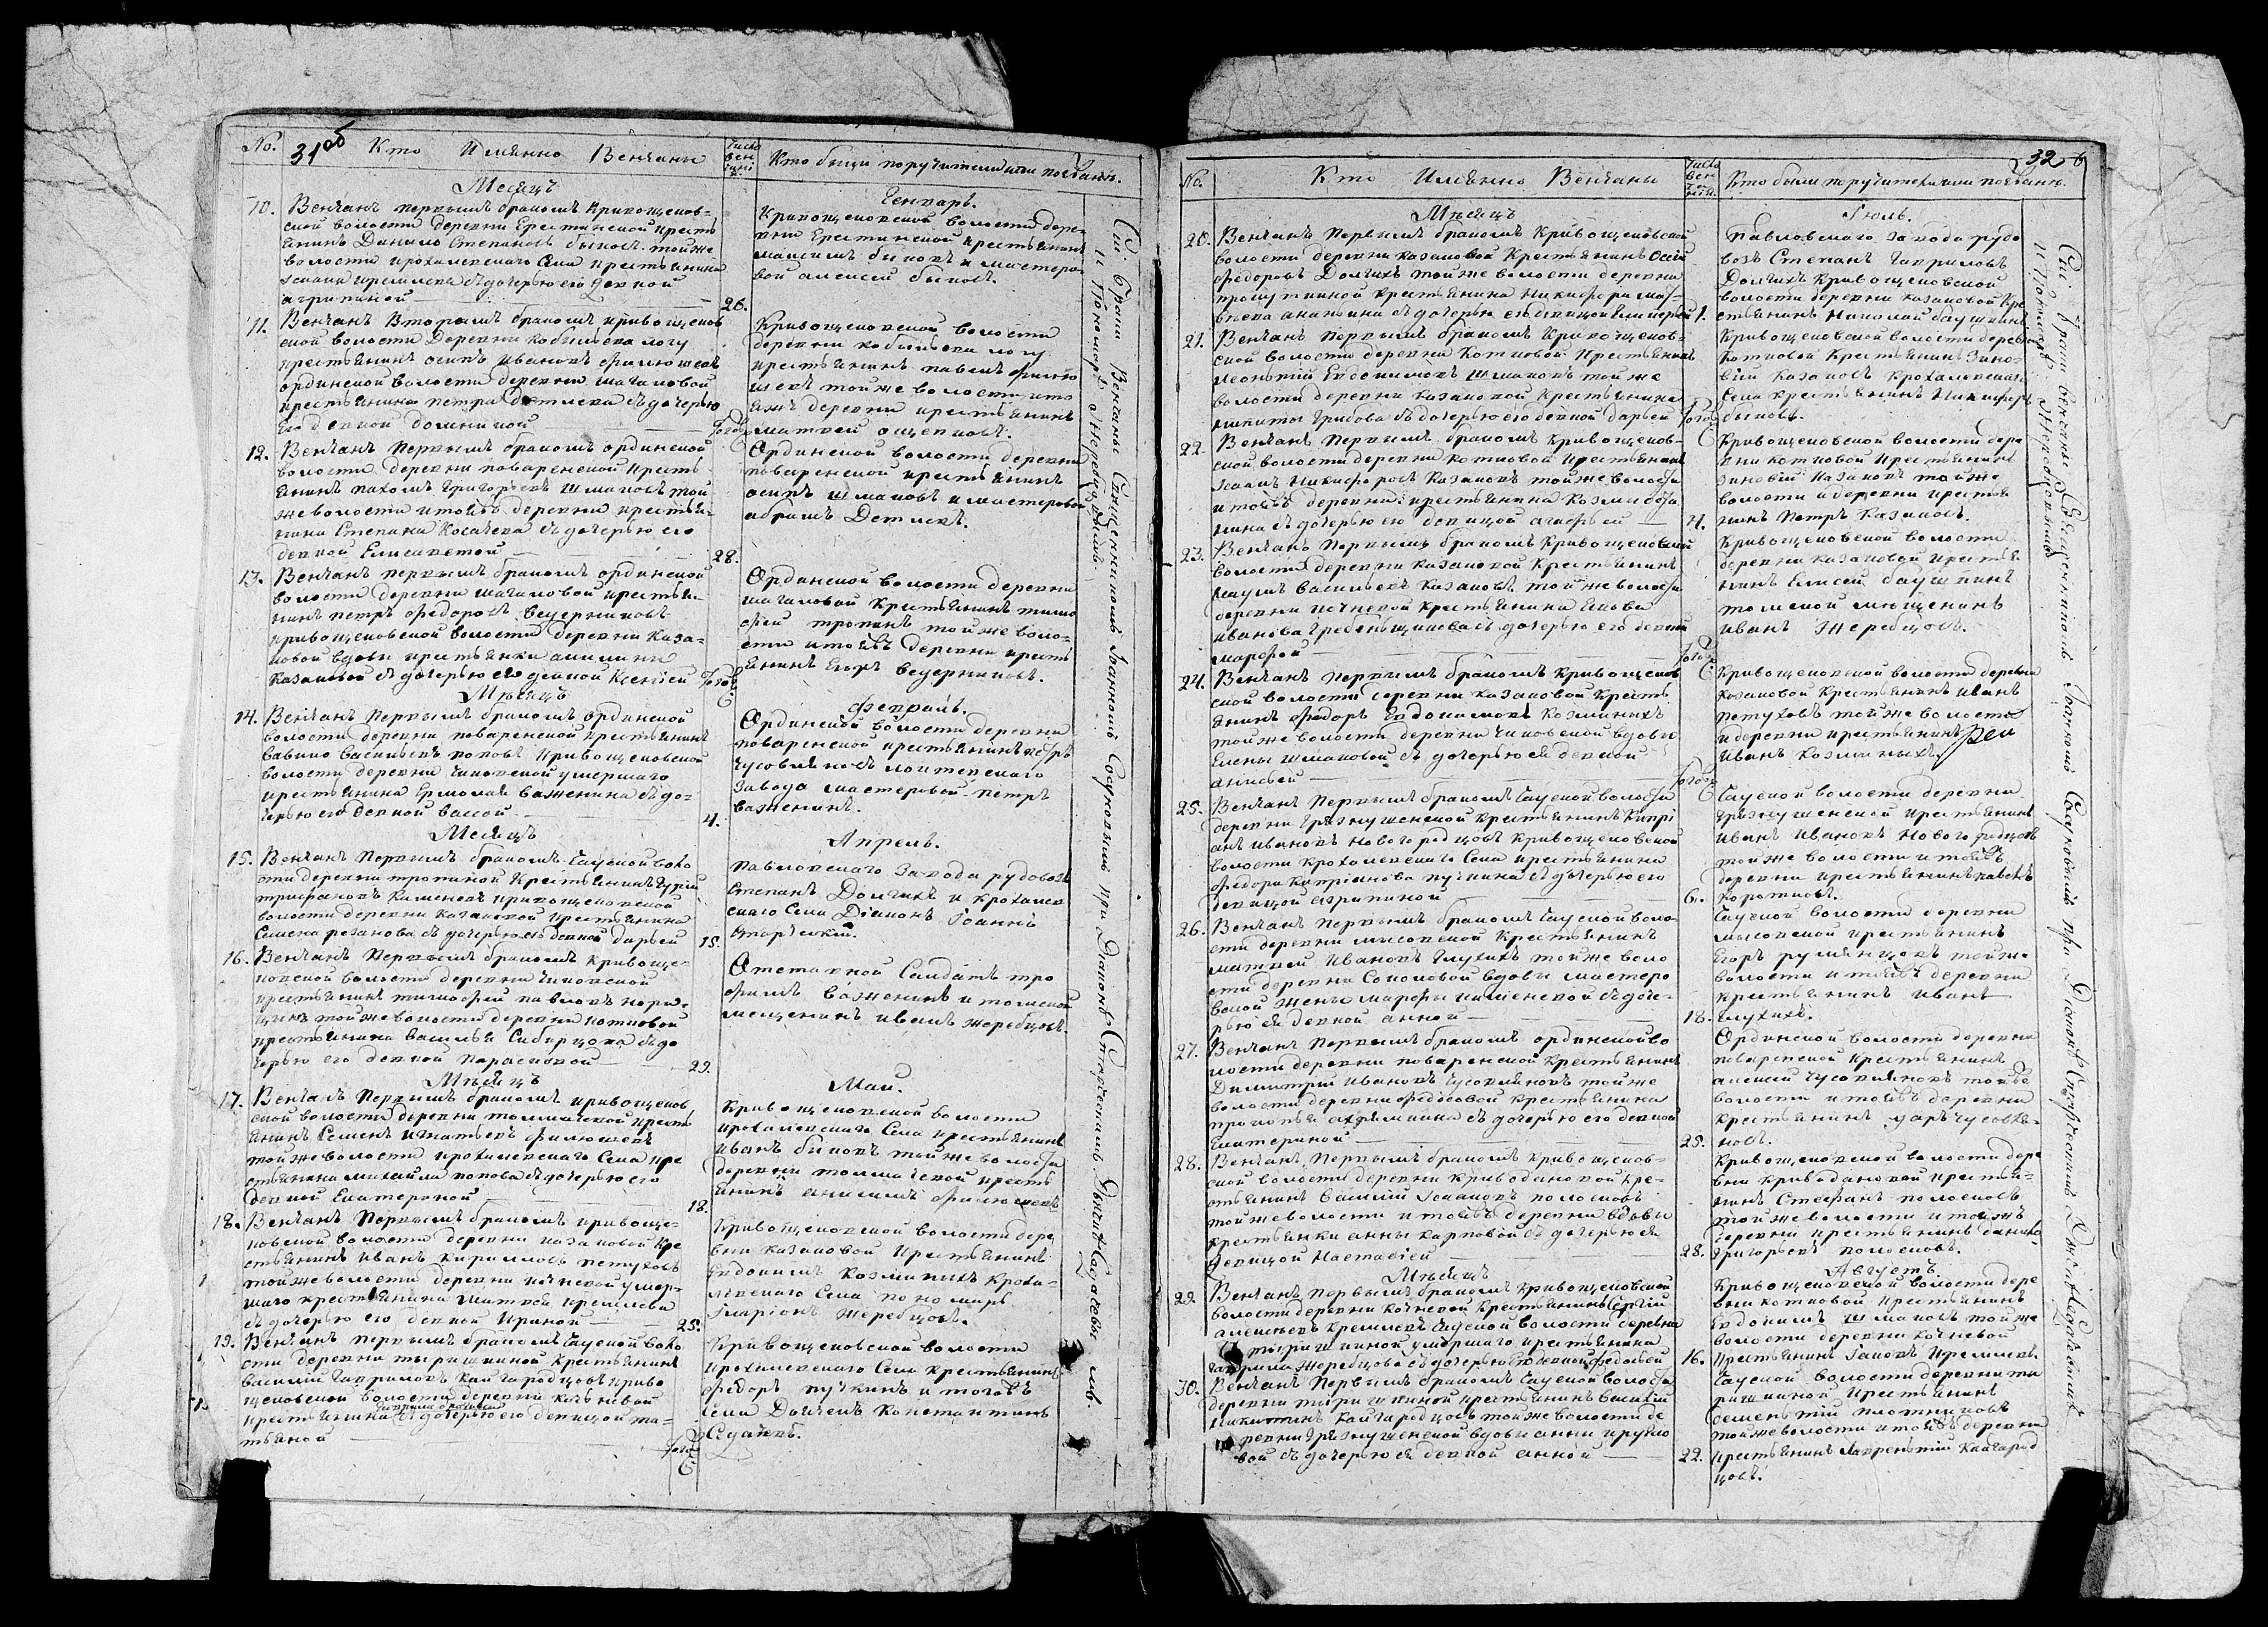 No. 31об Кто Имянно Венчаны
Число венчания
Кто были поручители или поезжане.
Месяцъ
Генварь.
10. Венчанъ первымъ бракомъ кривощеков=
ской волости деревни Ерестинской кресть
янинъ Данило Степановъ быковъ тойже
волости крохалевскаго села крестьянина
кремлева съ дочерью его девкой
агрипиной
26.
Кривощековской волости дере
вни Ерестинской крестьянинъ
максимъ быковъ и мастеро
вой алексей быковъ.
11. Венчанъ Вторымъ бракомъ кривощеков
ской волости Деревни кобылева логу
крестьянинъ осипъ ивановъ филюшевъ
ординской волости деревни шагаловой
крестьянина петра Детлева съ дочерью
его девкой домникой
тогожъ
Кривощековской волости
деревни кобылева логу
крестьянинъ павелъ филю
шевъ тойже волости и то
яжъ деревни крестьянинъ
матвей ощепковъ.
12. Венчанъ первымъ бракомъ ординской
волости деревни поваренской кресть
янинъ пахомъ григорьевъ шмаковъ той
же волости и тоежъ деревни крестья=
нина Степана Косачева съ дочерью его
девкой Елисаветой
28.
Ординской волости деревни
поваренской крестьянинъ
осипъ шмаковъ и мастеровой
абрамъ Детлевъ.
13. Венчанъ первымъ бракомъ ординской
волости деревни шагаловой крестья=
нинъ петръ федоровъ ведерниковъ
кривощековской волости деревни каза=
ковой вдовы крестьянки акилины
казаковой съ дочерью ея девкой Ксенией
тогожъ
Ординской волости деревни
шагаловой крестьянинъ тимо
фей тропинъ тойже воло=
сти и тоежъ деревни кресть
янинъ Егоръ ведерниковъ.
Месяцъ
февраль.
14. Венчанъ первымъ бракомъ ординской
волости деревни поваренской крестьянинъ
Вавило Васильевъ поповъ кривощековской
волости деревни чиковской умершаго
крестьянина Ермолая важенина съ до=
черью его девкой вассой
4.
Ординской волости деревни
поваренской крестьянинъ петръ
чусовляновъ
завода мастеровой петръ
важенинъ.
Месяцъ
Апрель.
15. Венчанъ первымъ бракомъ Чауской воло
сти деревни тропиной крестьянинъ гурий
трифановъ каменевъ кривощековской
волости деревни казаковой крестьянина
Семена резанова съ дочерью его девкой дарьей
15.
павловскаго завода рудовозъ
Степанъ Долгихъ и крохалев
скаго села Дiаконъ Iоаннъ
16. Венчанъ первымъ бракомъ кривоще=
ковской волости деревни чиковской
крестьянинъ тимофей павловъ
тойже волости деревни котковой
крестьянина василья Сибирцова съ до
черью его девкой параскевой
29.
Отставной Салдатъ тро
фимъ важенинъ и томской
мещенинъ иванъ жеребцовъ.
Месяцъ
Май.
17. Венчанъ первымъ бракомъ кривощеков
ской волости деревни толмачевой кресть
янинъ Семенъ игнатьевъ филюшевъ
тойже волости крохалевскаго села кре
стьянина михайла попова съ дочерью его
девкой Екатериной
18.
Кривощековской волости
крохалевскаго села крестьянинъ
иванъ быковъ тойже волости
деревни толмачевой кресть
янинъ анисимъ филюшевъ
18. Венчанъ первымъ бракомъ кривоще=
ковской волости деревни казаковой кре
стьянинъ иванъ кириловъ петуховъ
тойже волости деревни кочневой умер=
шаго крестьянина матвея кремлева
съ дочерью его девкой Ириной
25.
Кривощековской волости дере
вни казаковой крестьянинъ
Евдокимъ Козминихъ Кроха=
левскаго села пономарь
Iларiонъ жеребцовъ.
19. Венчанъ первымъ бракомъ Чауской воло
сти деревни тырышкиной крестьянинъ
василий гавриловъ кайгародцовъ криво
щековской волости деревни кочневой
крестьянина съ дочерью его девицой та=
тьяной
тогожъ
Кривощековской волости
крохалевскаго села крестьянинъ
федоръ пучкинъ и тогожъ
села Дьячекъ константинъ
Седачевъ.
Сiи браки Венчаны Священникомъ Iоанномъ Сосуновымъ при Дiаконе Дьячке Седачевымъ
и Пономаре Жеребцовымъ
32 б
No. Кто Имянно Венчаны
Число венчания.
Кто были поручители или поезжане.
Месяцъ
Iюль.
20. Венчанъ первымъ бракомъ кривощековской
волости деревни казаковой крестьянинъ Осипъ
федоровъ Долгихъ тойже волости деревни
прокуткиной крестьянина Никифора мат=
веева ананьина съ дочерью его девицой
1.
павловскаго завода рудо
возъ Степанъ гавриловъ
Долгихъ кривощековской
волости деревни казаковой кре
стьянинъ Николай баушкинъ
21. Венчанъ первымъ бракомъ кривощеков=
ской волости деревни котковой крестьянинъ
леонтий Евдокимовъ шмаковъ тойже
волости деревни казаковой крестьянина
никиты грибова съ дочерью его девкой дарьей
тогожъ
Кривощековской волости деревни
Котковой крестьянинъ Зино=
вий казаковъ крохалевскаго
села крестьянинъ Никифоръ
быковъ.
22. Венчанъ первымъ бракомъ кривощеков=
ской волости деревни котковой крестьянинъ
Никифоровъ казаковъ тойже волости
и тоежъ деревни крестьянина козмы
съ дочерью его девицой агафьей
4.
Кривощековской волости дере
вни котковой крестьянинъ
зиновий казаковъ тойже
волости и деревни крестья
нинъ петръ казаковъ.
23. Венчанъ первымъ бракомъ кривощековской
волости деревни казаковой крестьянинъ
наумъ васильевъ казаковъ тойже волости
деревни кочневой крестьянина
иванова гребенщикова съ дочерью его девкой
марфой
тогожъ
Кривощековской волости
деревни казаковой крестья
нинъ Елисей баушкинъ
томской мещенинъ
иванъ Жеребцовъ.
24. Венчанъ первымъ бракомъ кривощеков
ской волости деревни казаковой кресть
янинъ федоръ Евдокимовъ козминыхъ
тойже волости деревни чиковской вдовы
Елены шмаковой съ дочерью ея девкой
тогожъ
Кривощековской волости деревни
казаковой крестьянинъ иванъ
петуховъ тойже волости
и деревни крестьянинъ
иванъ козминыхъ.
25. Венчанъ первымъ бракомъ Чауской волости
деревни грязнушенской крестьянинъ кипрi
анъ ивановъ новогородцовъ кривощековской
волости крохалевскаго села крестьянина
федора кипрiянова пучкина съ дочерью его
девицой агрипиной
6.
Чауской волости деревни
грязнушенской крестьянинъ
иванъ ивановъ новогородцовъ
тойже волости и тоежъ
деревни крестьянинъ павелъ
коротковъ.
26. Венчанъ первымъ бракомъ Чауской воло
сти деревни мысовской крестьянинъ
матвей ивановъ глухихъ тойже воло
сти деревни Соколовой вдовы мастеро
вой жены марфы каменской съ доче=
рью ея девкой анной
18.
Чауской волости деревни
мысовской крестьянинъ
Егоръ румянцовъ тойже
волости и тоежъ деревни
крестьянинъ иванъ
глухихъ.
27. Венчанъ первымъ бракомъ ординской во
лости деревни поваренской крестьянинъ
Димитрий ивановъ чусовляновъ тойже
волости деревни федосовой крестьянина
прокопья съ дочерью его девкой
Екатериной
25.
Ординской волости деревни
поваренской крестьянинъ
алексей чусовляновъ тойже
волости и тоежъ деревни
крестьянинъ чусовля=
новъ.
28. Венчанъ первымъ бракомъ кривощеков=
ской волости деревни криводановой кре=
стьянинъ василий полосковъ
тойже волости и тоежъ деревни вдовы
крестьянки анны карповой съ дочерью ея
девицой Настасiей
28.
Кривощековской волости дере
вни криводановой крестья=
нинъ Стефанъ полосковъ
тойже волости и тоежъ
деревни крестьянинъ данило
григорьевъ полосковъ.
Месяцъ
Августъ.
29. Венчанъ первымъ бракомъ кривощековской
волости деревни кочневой крестьянинъ Сергiй
алексеевъ кремлевъ Чауской волости деревни
тырышкиной умершаго крестьянина
гаврила жеребцова съ дочерью его девицой федосьей
16.
Кривощековской волости дере
вни котковой крестьянинъ
Евдокимъ шмаковъ тойже
волости деревни кочневой
крестьянинъ кремлевъ.
30. Венчанъ первымъ бракомъ Чауской волости
деревни тырышкиной крестьянинъ василий
никитинъ кайгародцовъ тойже волости де
ревни грязнушенской вдовы анны
съ дочерью ея девкой анной
22.
Чауской волости деревни ты
рышкиной крестьянинъ
плотниковъ
тойже волости и тоежъ деревни
крестьянинъ лаврентий кайгарод
цовъ.
Сiи браки венчаны Священникомъ Iоанномъ Сосуновымъ при Дiаконе Дьячке Седачевымъ
и Пономаре Жеребцовымъ